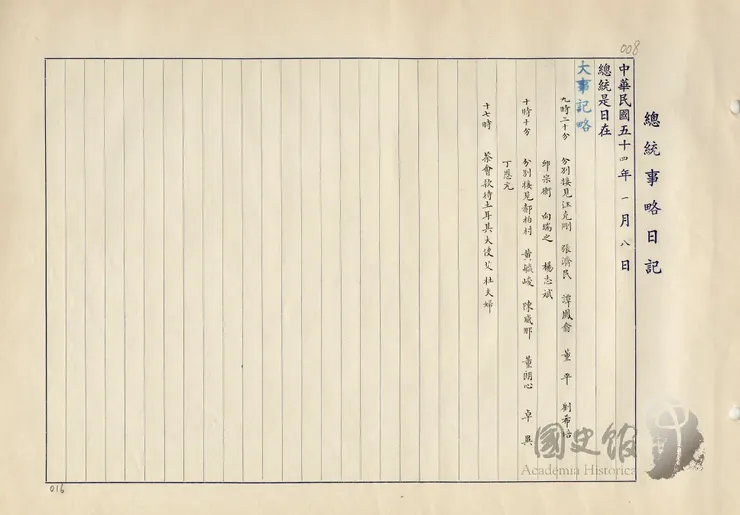 008
總統事略日記
中華民國五十四年 一月八日
總統是日在
大事記略
九時二十分 分別接見汪克剛 張濟民 譚鳳 董平 劉希
邱宗衡 向瑞之 楊志斌
十時十分 分別接見郝柏村 黃毓峻 陳威那 董開心 卓異
丁恩元
十七時 茶會款待土耳其大使艾杜夫婦
016
國史館
Academia Historica